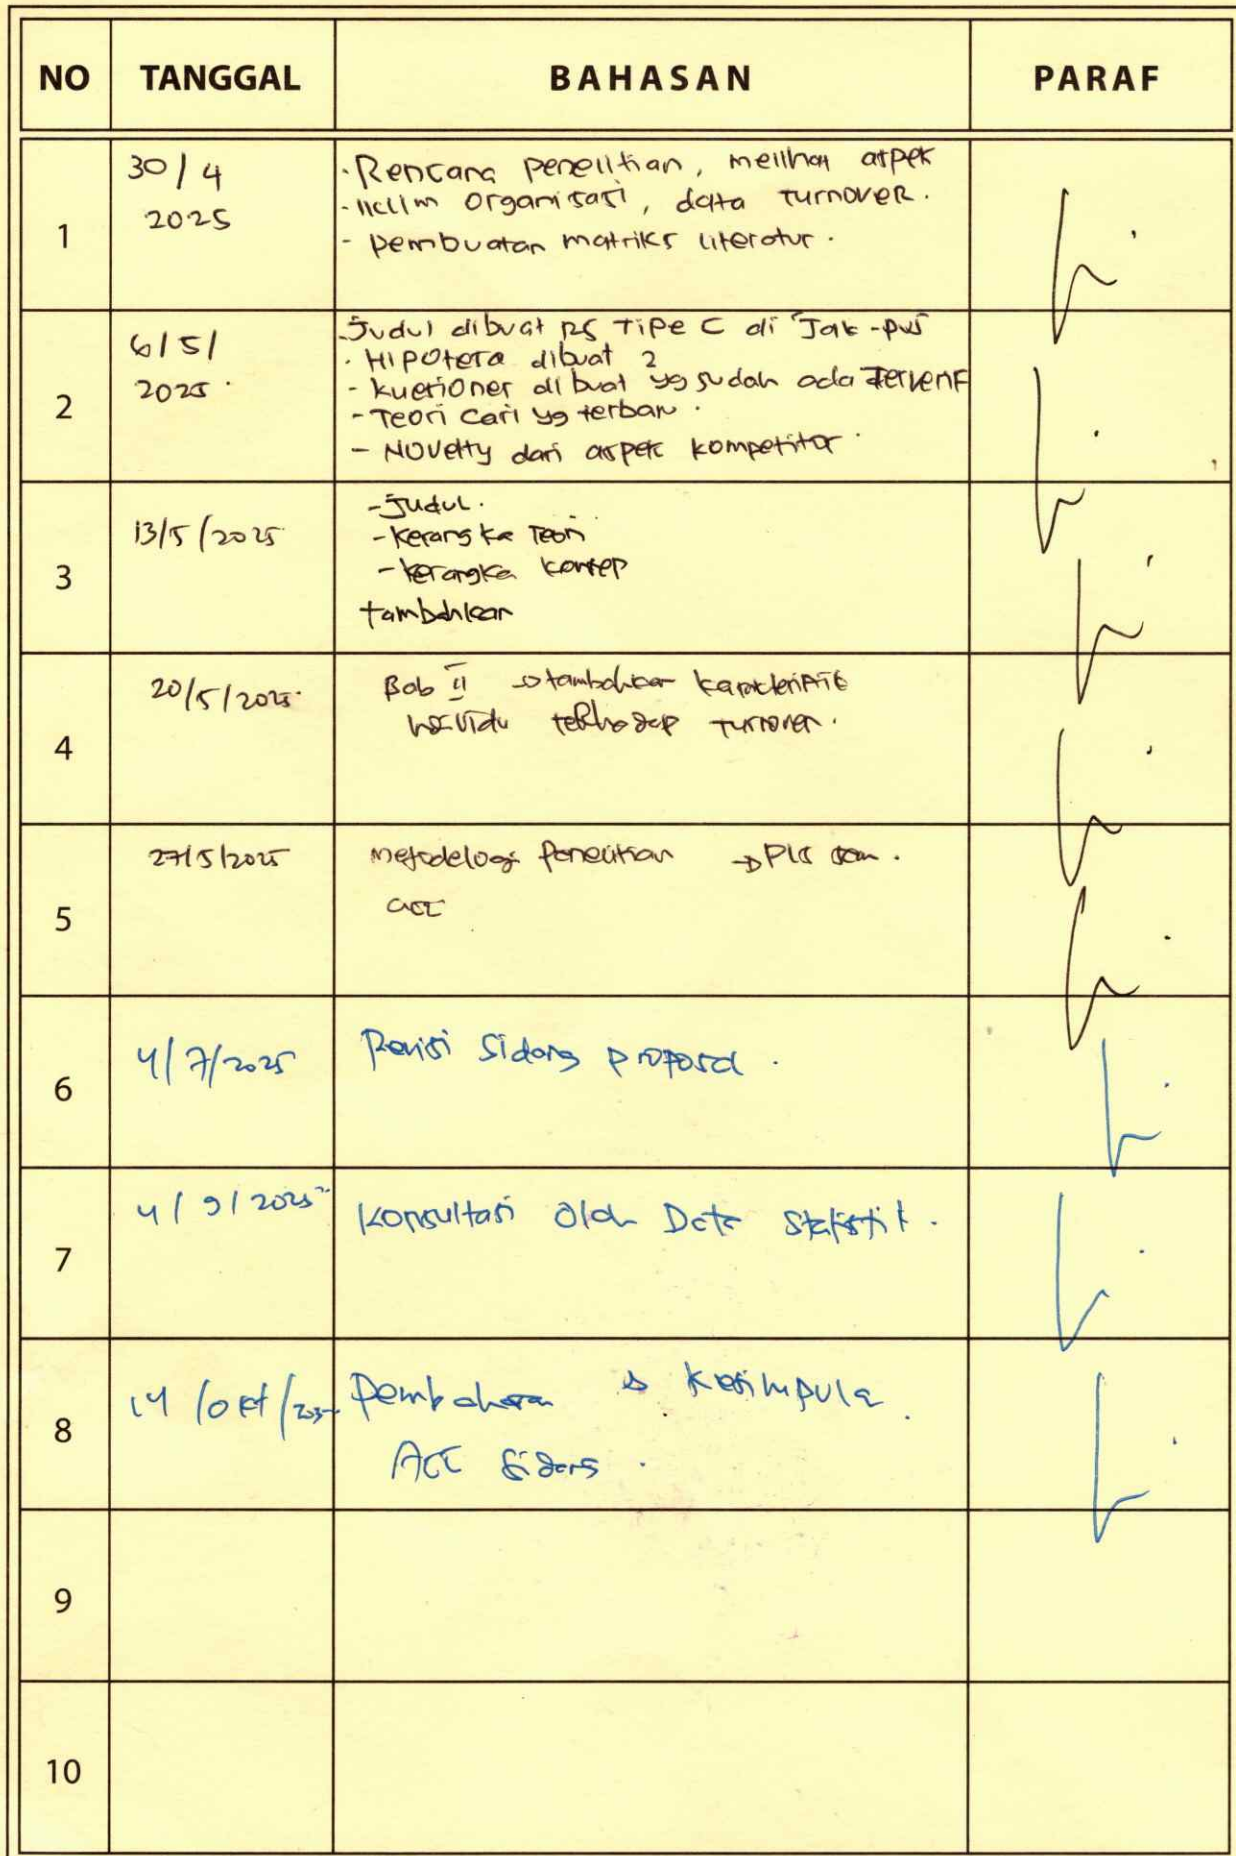 NO TANGGAL BAHASAN PARAF
1
30/4
2025
- Rencana penelitian, melihat aspek
- iklim organisasi, data turnover.
- pembuatan matriks literatur.
2
6/5/
2025.
- Judul dibuat RS Tipe C di Jak-pus
- Hipotesa dibuat 2
- kuesioner dibuat yg sudah ada
- Teori cari yg terbaru.
- Novelty dari aspek kompetitor.
3
13/5/2025
- Judul.
- Kerangka Teori
- Kerangka konsep
tambahkan
4
20/5/2025.
Bab II → tambahkan karakteristik
individu terhadap turnover.
5
27/5/2025
metodelogi penelitian → PLS sem.
acc
6
4/7/2025
Revisi Sidang proposal.
7
4/9/2025
Konsultasi Olah Data statistik.
8
14/okt/2025
pembahasan & kesimpula.
ACC Sidang.
9
10